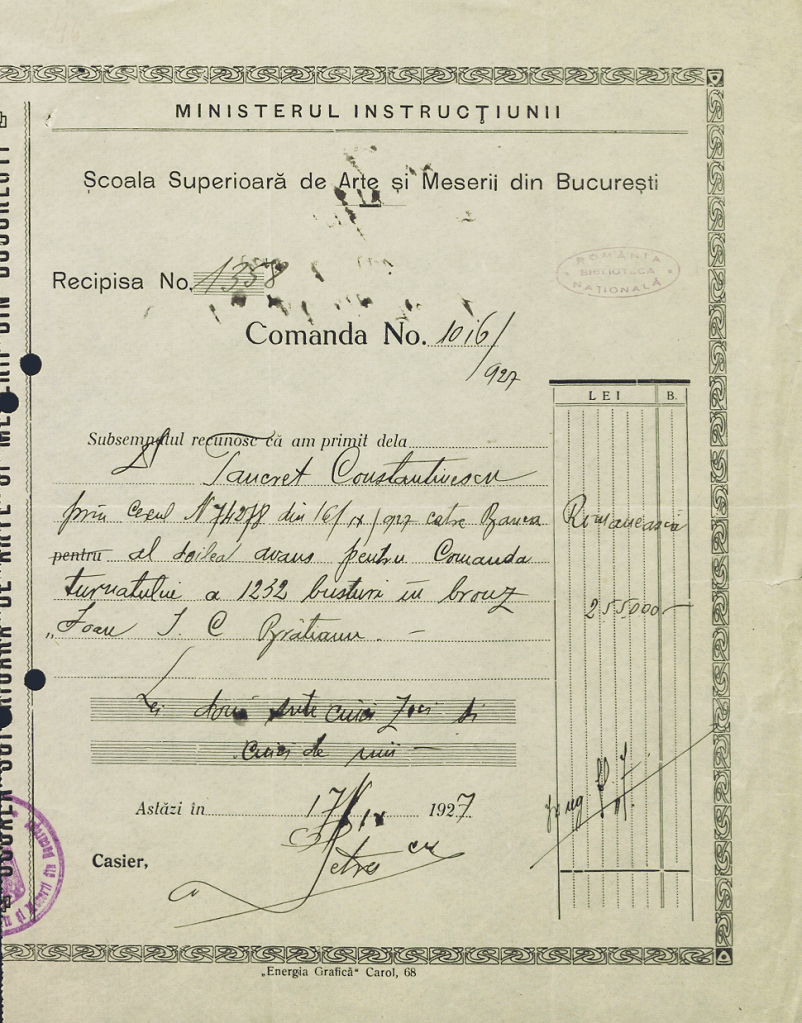 MINISTERUL INSTRUCŢIUNII
Școala Superioară de Arte și Meserii din București
Recipisa No. 1358
ROMÂNIA
BIBLIOTECA
NAȚIONALĂ
Comanda No. 1016/
/927
LEI B.
Subsemnatul recunosc că am primit dela
Dl Tancret Constantinescu
prin cecul N 74278 din 16/IX/927 catre Banca Romanească
pentru al doilea avans pentru Comanda
turnatului a 1232 busturi in bronz 255000 —
„Ioan I. C Brătianu. —
Lei două sute cinci zeci si
cinci de mii —
Astăzi în 17/IX 1927
Casier,
Petrescu
„Energia Grafică“ Carol, 68